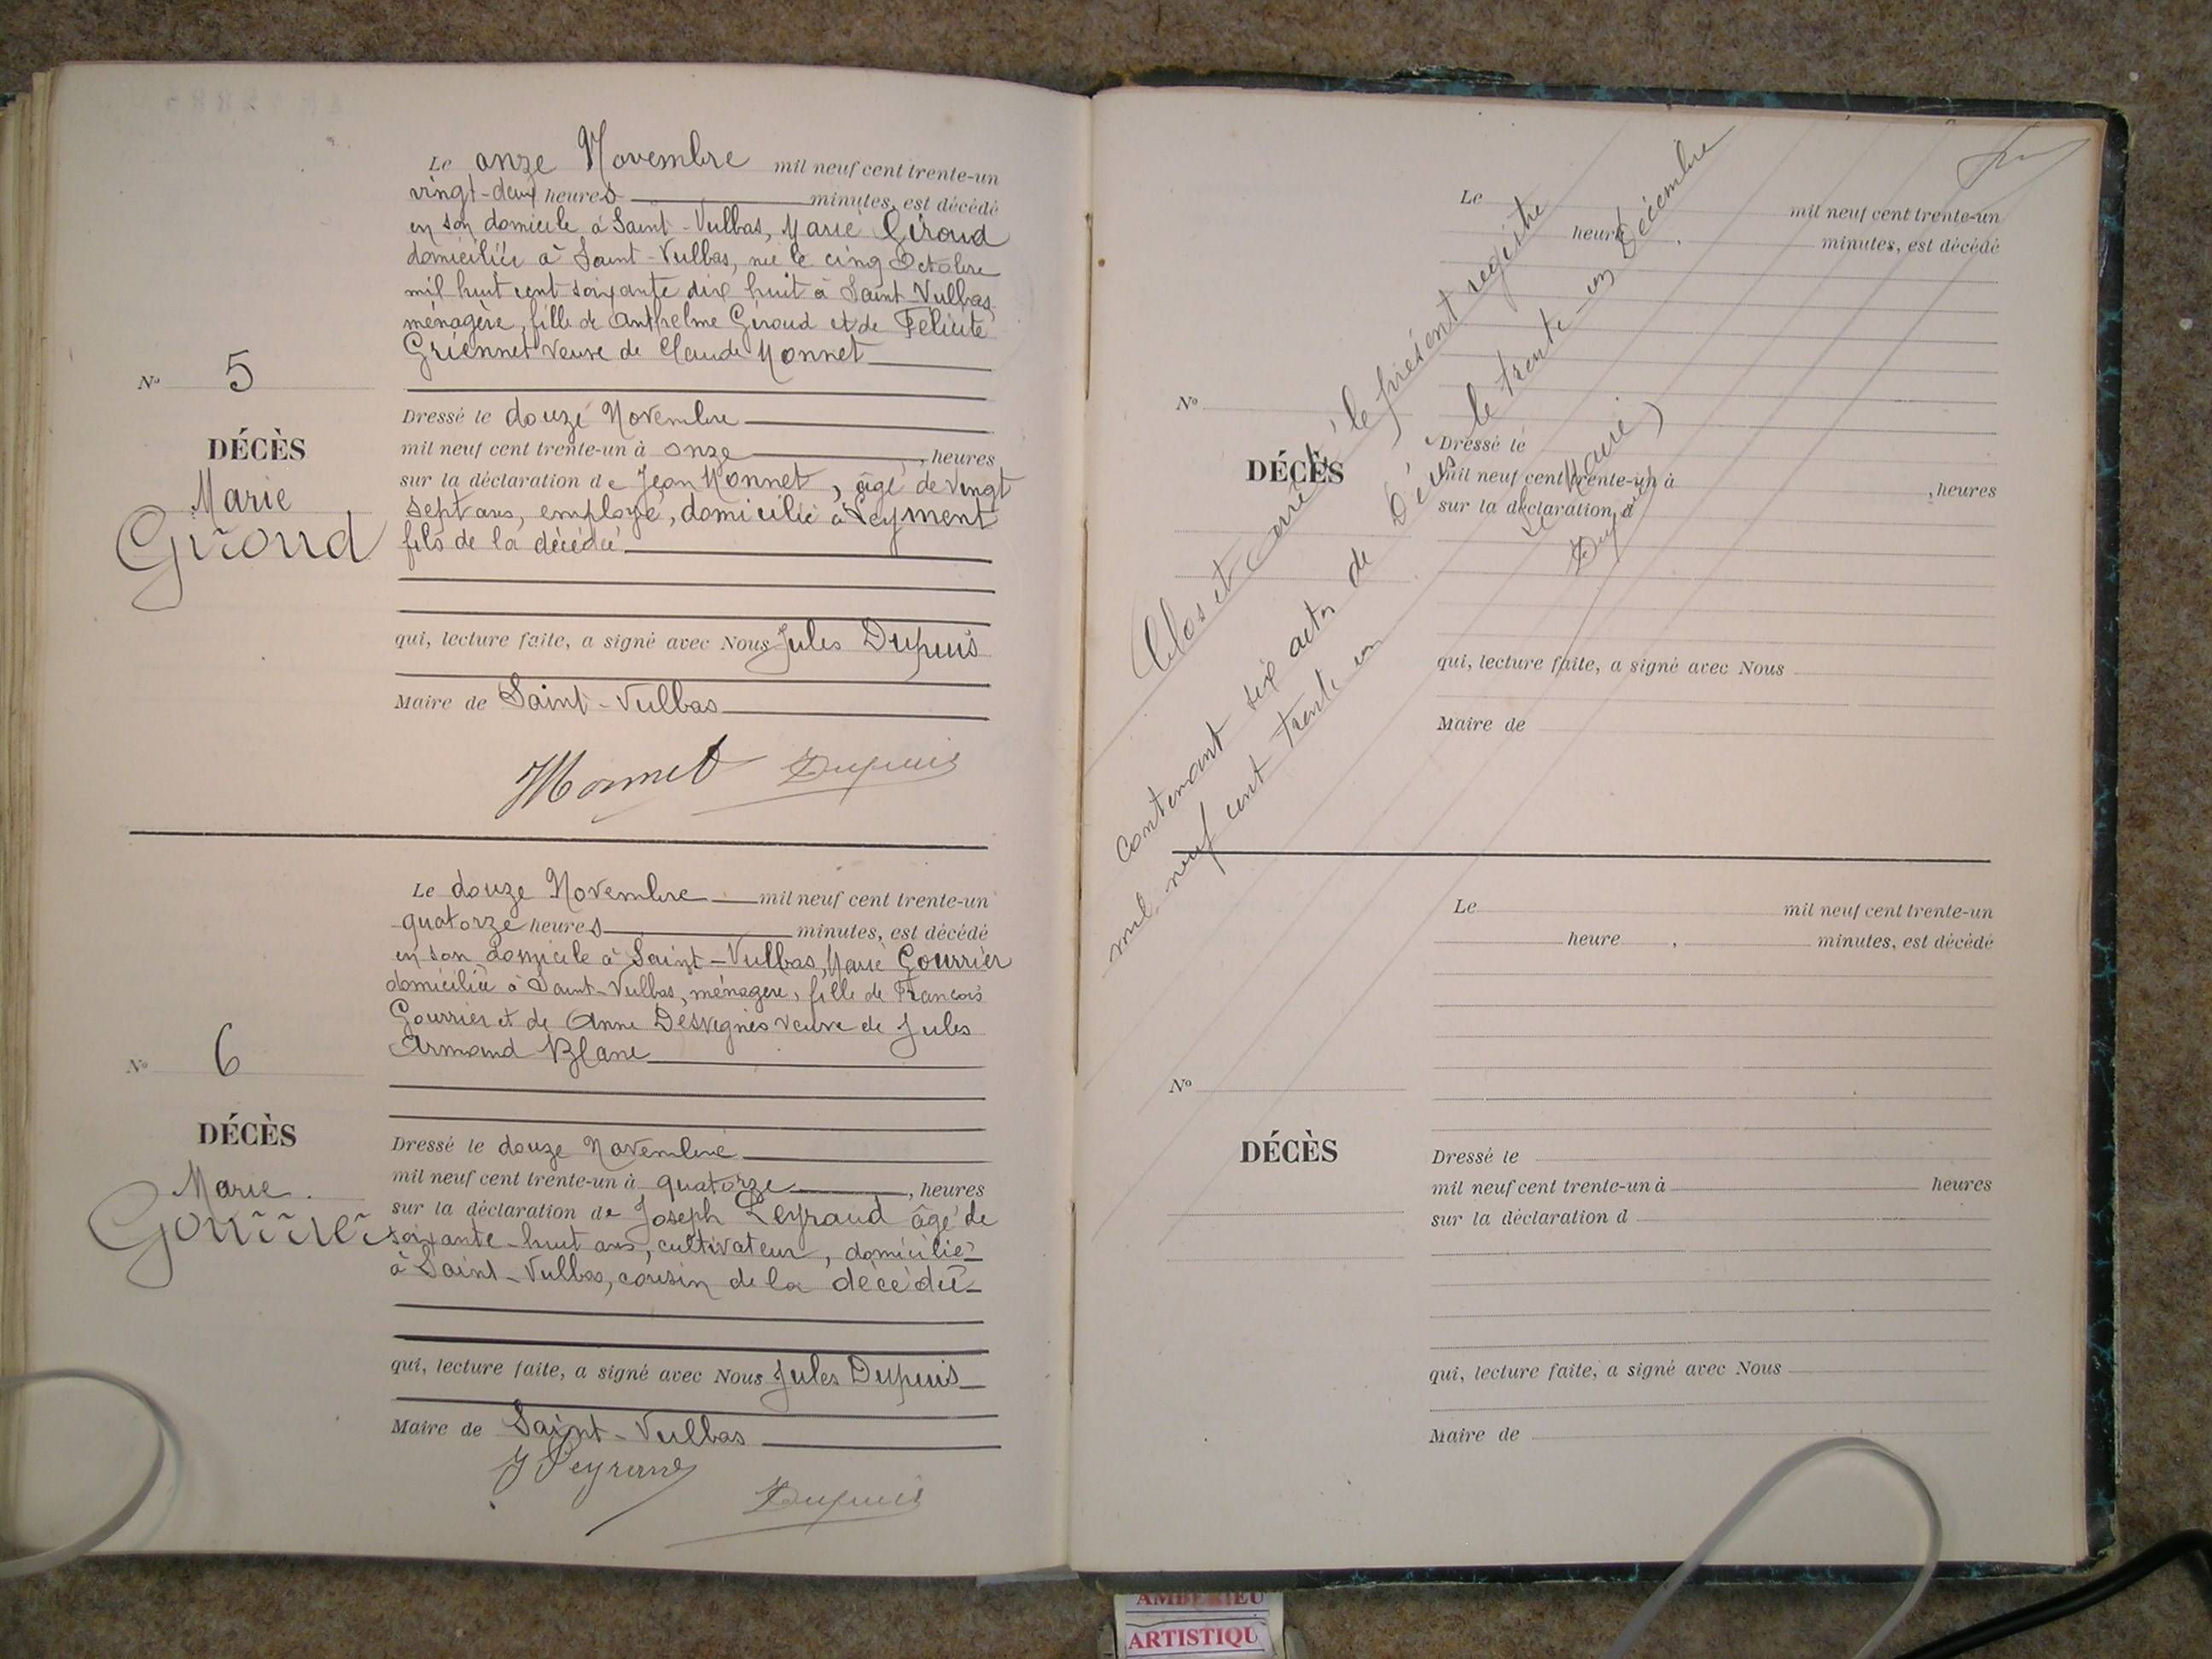 Le onze Novembre mil neuf cent trente-un
vingt-deux heures minutes, est décédé
en son domicile à Saint-Vulbas, Marie Giroud
domiciliée à Saint-Vulbas, née le cinq Octobre
mil huit cent soixante dix huit à Saint-Vulbas,
ménagère, fille de Anthelme Giroud et de Félicité
Griennet veuve de Claude Monnet
Nº 5
DÉCÈS
Marie
Giroud
Dressé le douze Novembre
mil neuf cent trente-un à onze , heures
sur la déclaration de Jean Monnet, âgé de vingt
sept ans, employé, domicilié à Leyment
fils de la décédée
qui, lecture faite, a signé avec Nous Jules Dupuis
Maire de Saint-Vulbas
Monnet Dupuis
Le douze Novembre mil neuf cent trente-un
quatorze heures minutes, est décédé
en son domicile à Saint-Vulbas, Marie Gourrier
domiciliée à Saint-Vulbas, ménagère, fille de François
Gourrier et de Anne Desvignes veuve de Jules
Armand Blanc
Nº 6
DÉCÈS
Marie
Gourrier
Dressé le douze Novembre
mil neuf cent trente-un à quatorze , heures
sur la déclaration de Joseph Leyraud âgé de
soixante-huit ans, cultivateur, domicilié
à Saint-Vulbas, cousin de la décédée
qui, lecture faite, a signé avec Nous Jules Dupuis
Maire de Saint-Vulbas
J Leyraud
Dupuis
Le mil neuf cent trente-un
heure , minutes, est décédé
Nº
DÉCÈS
Dressé le
mil neuf cent trente-un à , heures
sur la déclaration d
qui, lecture faite, a signé avec Nous
Maire de
Clos et arrêté le présent registre
contenant six actes de Décès, le trente-un Décembre
mil neuf cent trente un
Le Maire
Dupuis
Le mil neuf cent trente-un
heure , minutes, est décédé
Nº
DÉCÈS
Dressé le
mil neuf cent trente-un à heures
sur la déclaration d
qui, lecture faite, a signé avec Nous
Maire de
AMBERIEU
ARTISTIQU